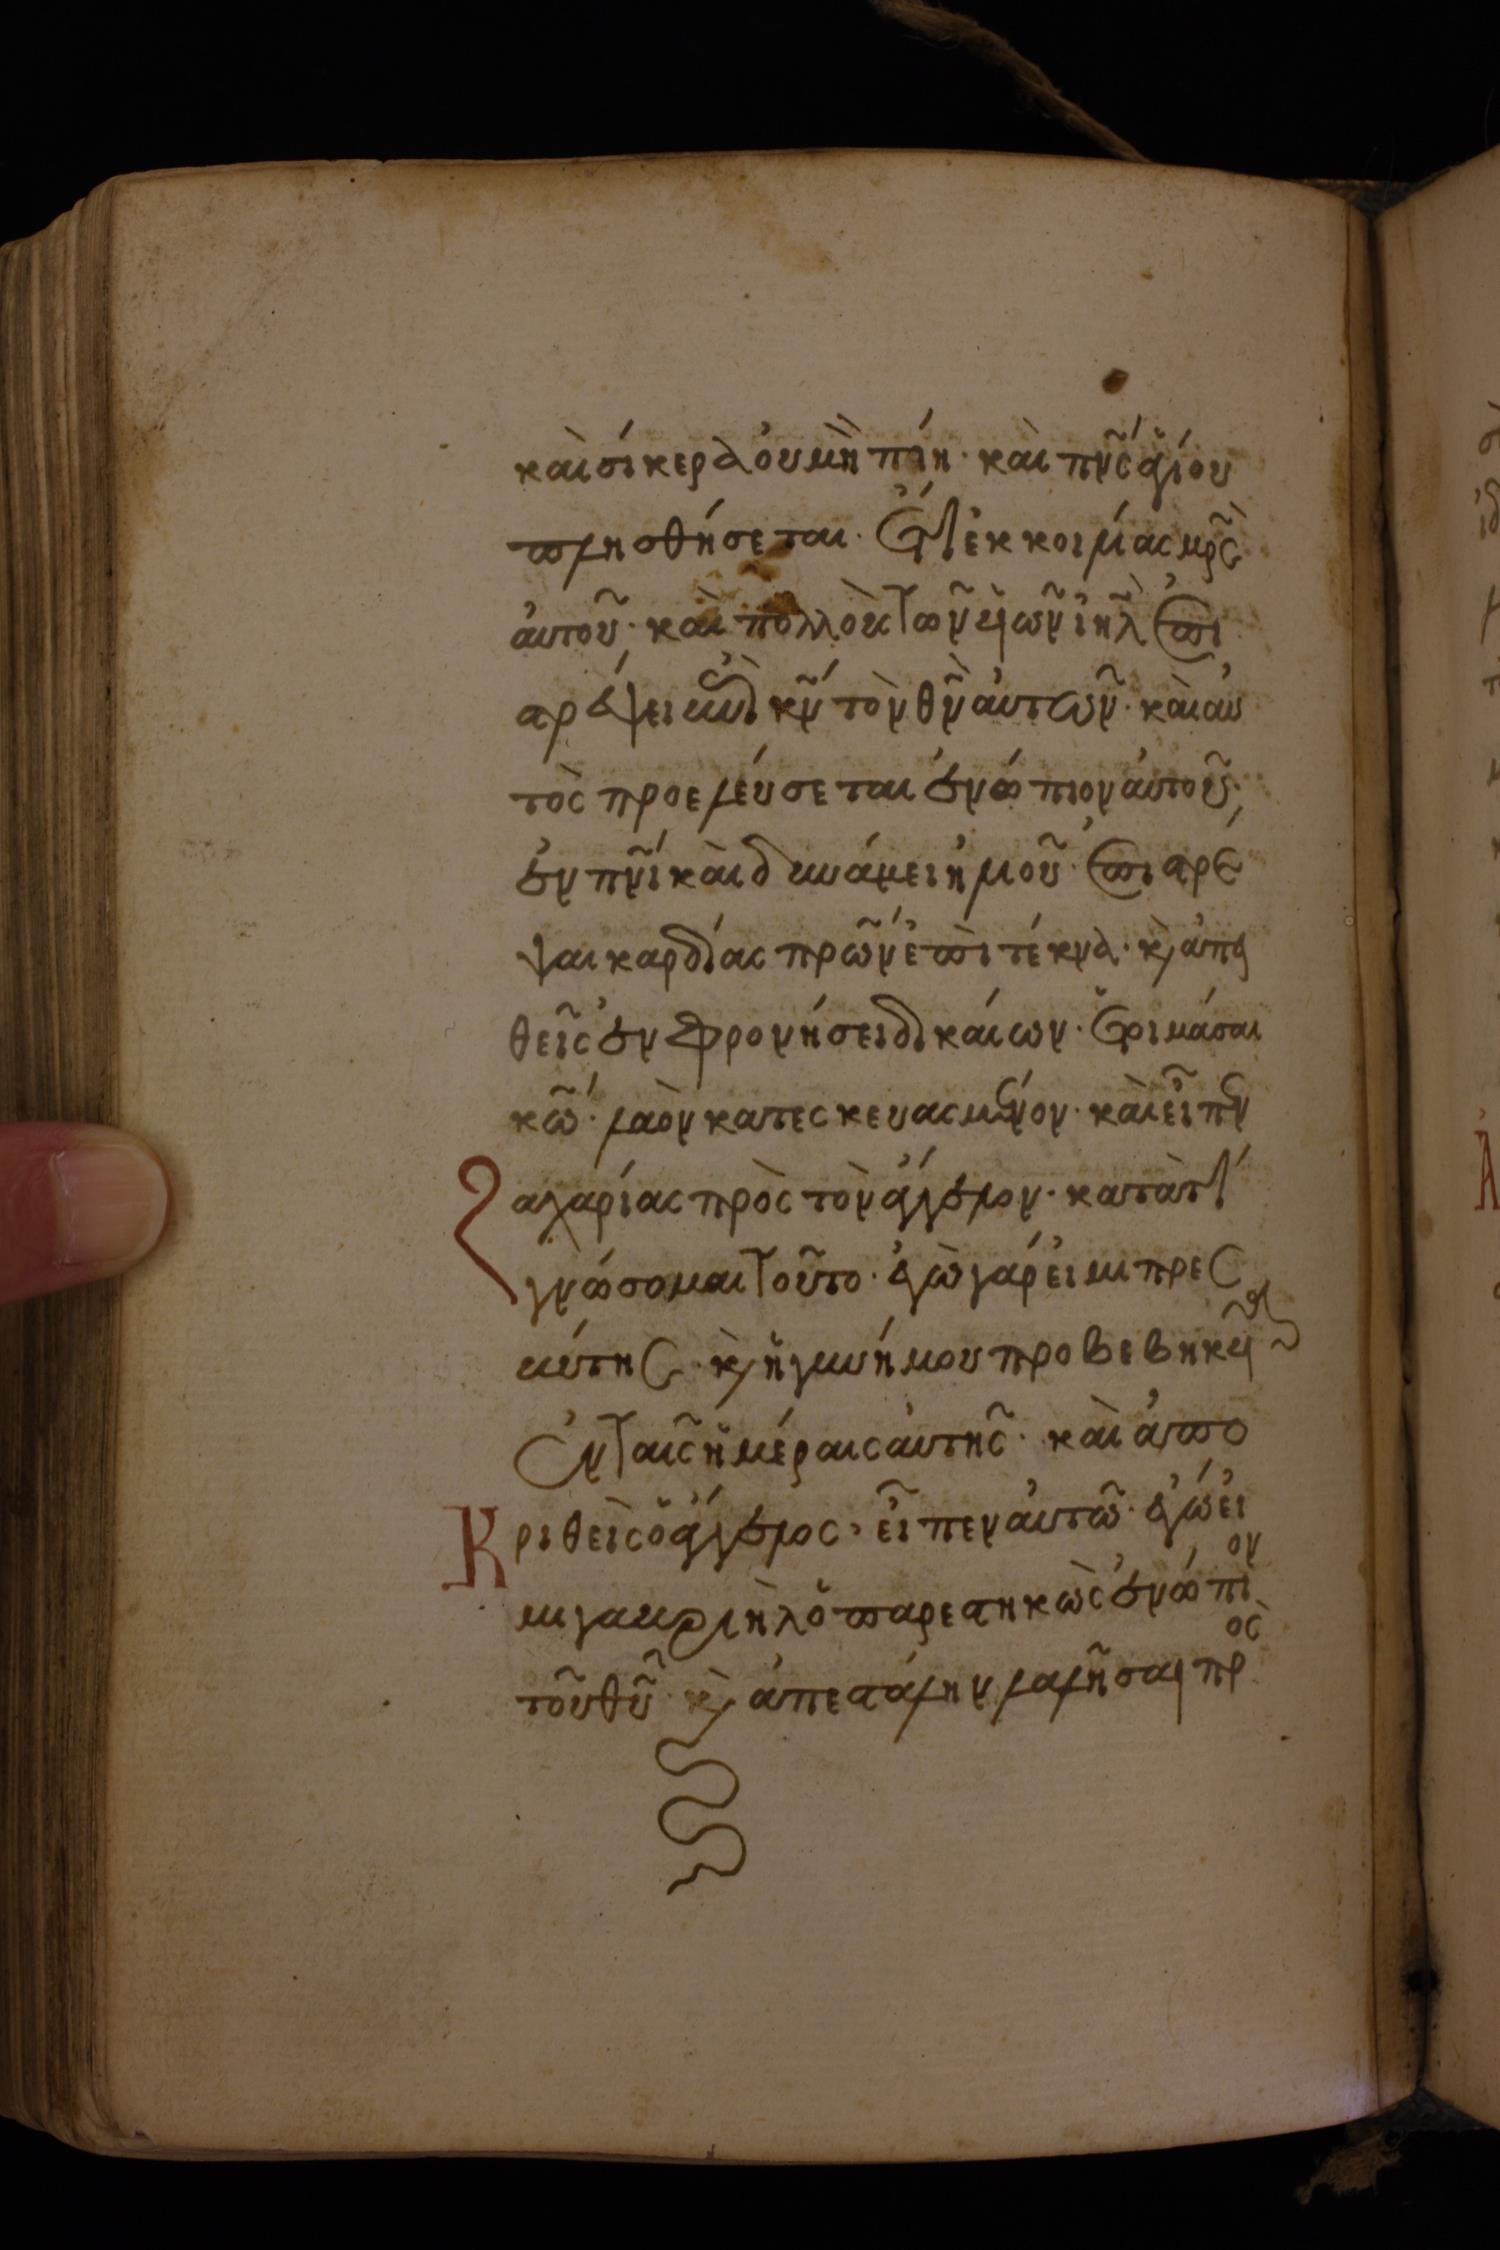 καὶ σίκερα οὐ μὴ πίη· καὶ πν̅ς ἁγίου
πλησθήσεται. Ἔτι ἐκ κοιλίας μρ̅ς
αὐτοῦ· καὶ πολλοὺς τῶν υἱῶν ιη̅λ ἐπι
στρέψει ἐπὶ κν̅ τὸν θν̅ αὐτῶν· καὶ αὐ
τὸς προελεύσεται ἐνώπιον αὐτοῦ,
ἐν πν̅ι καὶ δυνάμει ἡλιοῦ· ἐπιστρέ
ψαι καρδίας πρω̅ν ἐπὶ τέκνα· κ̀ ἀπει
θεῖς ἐν φρονήσει δικαίων· ἑτοιμάσαι
κω̅· λαὸν κατεσκευασμένον· καὶ εἶπεν
Ζαχαρίας πρὸς τὸν ἄγγελον· κατὰ τί
γνώσομαι τοῦτο· ἐγὼ γάρ εἰμι πρεσ
βύτης· κ̀ ἡ γυνή μου προβεβηκυῖα
ἐν ταῖς ἡμέραις αὐτῆς· καὶ ἀπο
Κριθεὶς ὁ ἄγγελος· εἶπεν αὐτῶ· ἐγώ εἰ
μι γαβριὴλ ὁ παρεστηκὼς ἐνώπιον
τοῦ θυ̅· κ̀ ἀπεστάλην λαλῆσαι πρὸς